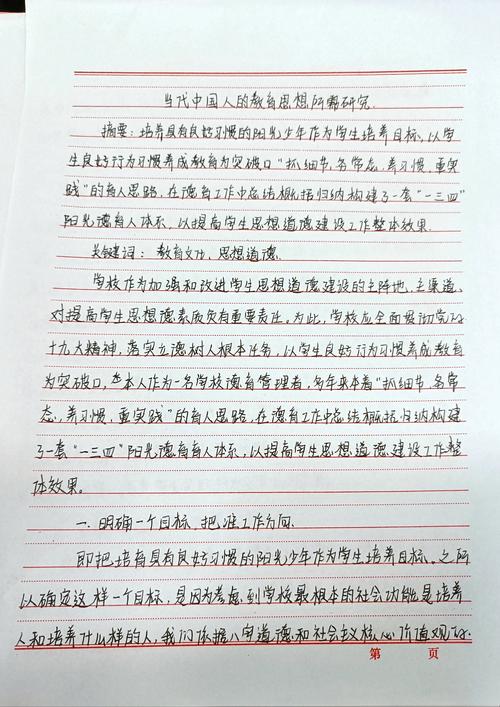 当代中国人的教育思想所需研究
摘要：培养具有良好习惯的阳光少年作为学生培养目标，以学
生良好行为习惯养成教育为突破口"抓细节，务常态，养习惯，重实
践"的育人思路，在德育工作中总结概括归纳构建了一套"一三四"
阳光德育人体系，以提高学生思想道德建设工作整体效果。
关键词：教育文化，思想道德。
学校作为加强和改进学生思想道德建设的主阵地、主渠道，
对提高学生思想德素质负有重要责任。为此，学校应全面贯彻党的
十九大精神，落实立德树人根本任务，以学生良好行为习惯养成教育
为突破口，本人作为一名学校德育管理者，多年来本着"抓细节，务常
态，养习惯，重实践"的育人思路，在德育工作中总结概括归纳构建
了一套"一三四"阳光德育育人体系，以提高学生思想道德建设工作整
体效果。
一、明确一个目标，把准工作方向。
即把培育具有良好习惯的阳光少年作为学生培养目标。之所
以确定这样一个目标，是因为考虑到学校最根本的社会功能是培养
人和培养什么样的人，我们依据八字道德和社会主义核心价值观的
第 页